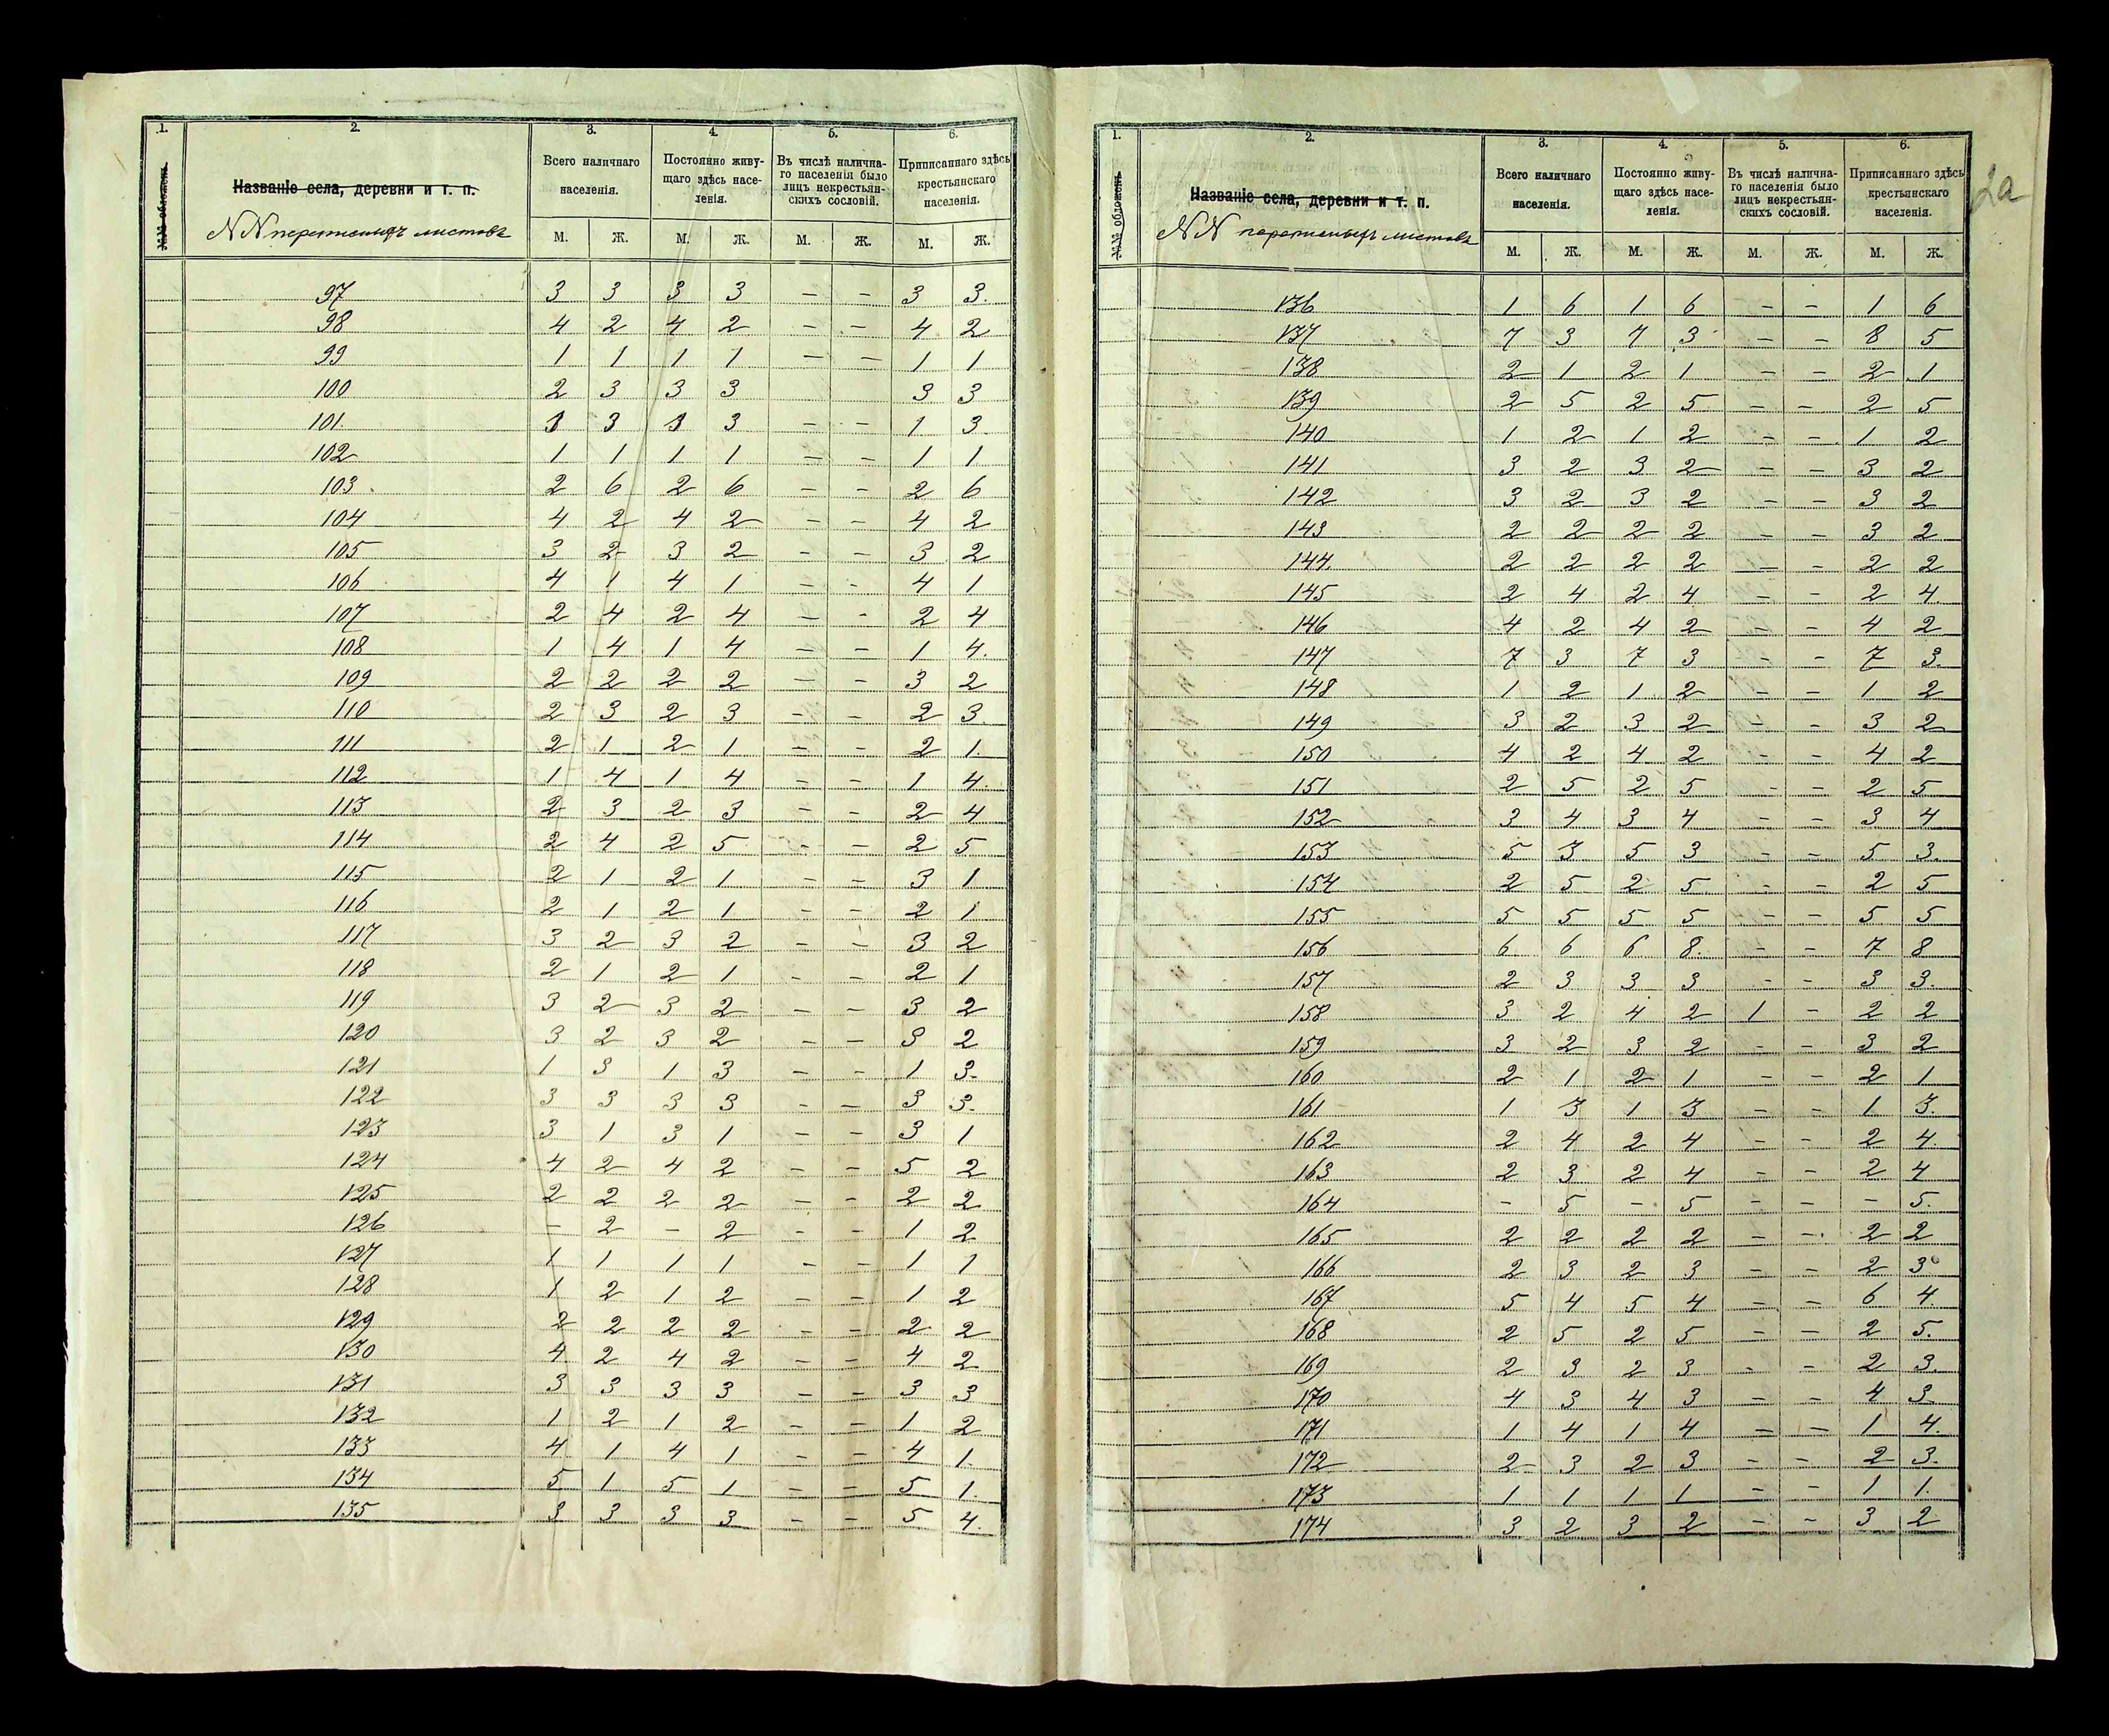 1. 2. 3. 4. 5. 6.
№№ обложекъ.
Названіе села, деревни и т. п.
NN переписныхъ листовъ
Всего наличнаго населенія.
Постоянно живущаго здѣсь населенія.
Въ числѣ наличнаго населенія было лицъ некрестьянскихъ сословій.
Приписаннаго здѣсь крестьянскаго населенія.
М. Ж. М. Ж. М. Ж. М. Ж.
97 3 3 3 3 – – 3 3.
98 4 2 4 2 – – 4 2
99 1 1 1 1 – – 1 1
100 2 3 3 3 3 3
101. 1 3 1 3 – – 1 3
102 1 1 1 1 – – 1 1
103 2 6 2 6 – – 2 6
104 4 2 4 2 – – 4 2
105 3 2 3 2 – – 3 2
106 4 1 4 1 – – 4 1
107 2 4 2 4 – – 2 4
108 1 4 1 4 – – 1 4.
109 2 2 2 2 – – 3 2
110 2 3 2 3 – – 2 3
111 2 1 2 1 – – 2 1.
112 1 4 1 4 – – 1 4.
113 2 3 2 3 – – 2 4
114 2 4 2 5 – – 2 5
115 2 1 2 1 – – 3 1
116 2 1 2 1 – – 2 1
117 3 2 3 2 – – 3 2
118 2 1 2 1 – – 2 1
119 3 2 3 2 – – 3 2
120 3 2 3 2 – – 3 2
121 1 3 1 3 – – 1 3.
122 3 3 3 3 – – 3 3.
123 3 1 3 1 – – 3 1
124 4 2 4 2 – – 5 2
125 2 2 2 2 – – 2 2
126 – 2 – 2 – – 1 2
127 1 1 1 1 – – 1 1
128 1 2 1 2 – – 1 2
129 2 2 2 2 – – 2 2
130 4 2 4 2 – – 4 2
131 3 3 3 3 – – 3 3
132 1 2 1 2 – – 1 2
133 4 1 4 1 – – 4 1.
134 5 1 5 1 – – 5 1.
135 3 3 3 3 – – 5 4.
2а
1. 2. 3. 4. 5. 6.
№№ обложекъ.
Названіе села, деревни и т. п.
NN переписныхъ листовъ
Всего наличнаго населенія.
Постоянно живущаго здѣсь населенія.
Въ числѣ наличнаго населенія было лицъ некрестьянскихъ сословій.
Приписаннаго здѣсь крестьянскаго населенія.
М. Ж. М. Ж. М. Ж. М. Ж.
136 1 6 1 6 – – 1 6
137 7 3 7 3 – – 8 5
138 2 1 2 1 – – 2 1
139 2 5 2 5 – – 2 5
140 1 2 1 2 – – 1 2
141 3 2 3 2 – – 3 2
142 3 2 3 2 – – 3 2
143 2 2 2 2 – – 3 2
144 2 2 2 2 – – 2 2
145 2 4 2 4 – – 2 4
146 4 2 4 2 – – 4 2
147 7 3 7 3 – – 7 3.
148 1 2 1 2 – – 1 2
149 3 2 3 2 – – 3 2
150 4 2 4 2 – – 4 2
151 2 5 2 5 – – 2 5
152 3 4 3 4 – – 3 4
153 5 3 5 3 – – 5 3.
154 2 5 2 5 – – 2 5
155 5 5 5 5 – – 5 5
156 6 6 6 8. – – 7 8
157 2 3 3 3 – – 3 3.
158 3 2 4 2 1 – 2 2
159 3 2 3 2 – – 3 2
160 2 1 2 1 – – 2 1
161 1 3 1 3 – – 1 3.
162 2 4 2 4 – – 2 4.
163 2 3 2 4 – – 2 4
164 – 5 – 5 – – – 5.
165 2 2 2 2 – – 2 2
166 2 3 2 3 – – 2 3
167 5 4 5 4 – – 6 4.
168 2 5 2 5 – – 2 5.
169 2 3 2 3 – – 2 3.
170 4 3 4 3 – – 4 3.
171 1 4 1 4 – – 1 4.
172 2 3 2 3 – – 2 3.
173 1 1 1 1 – – 1 1.
174 3 2 3 2 – – 3 2